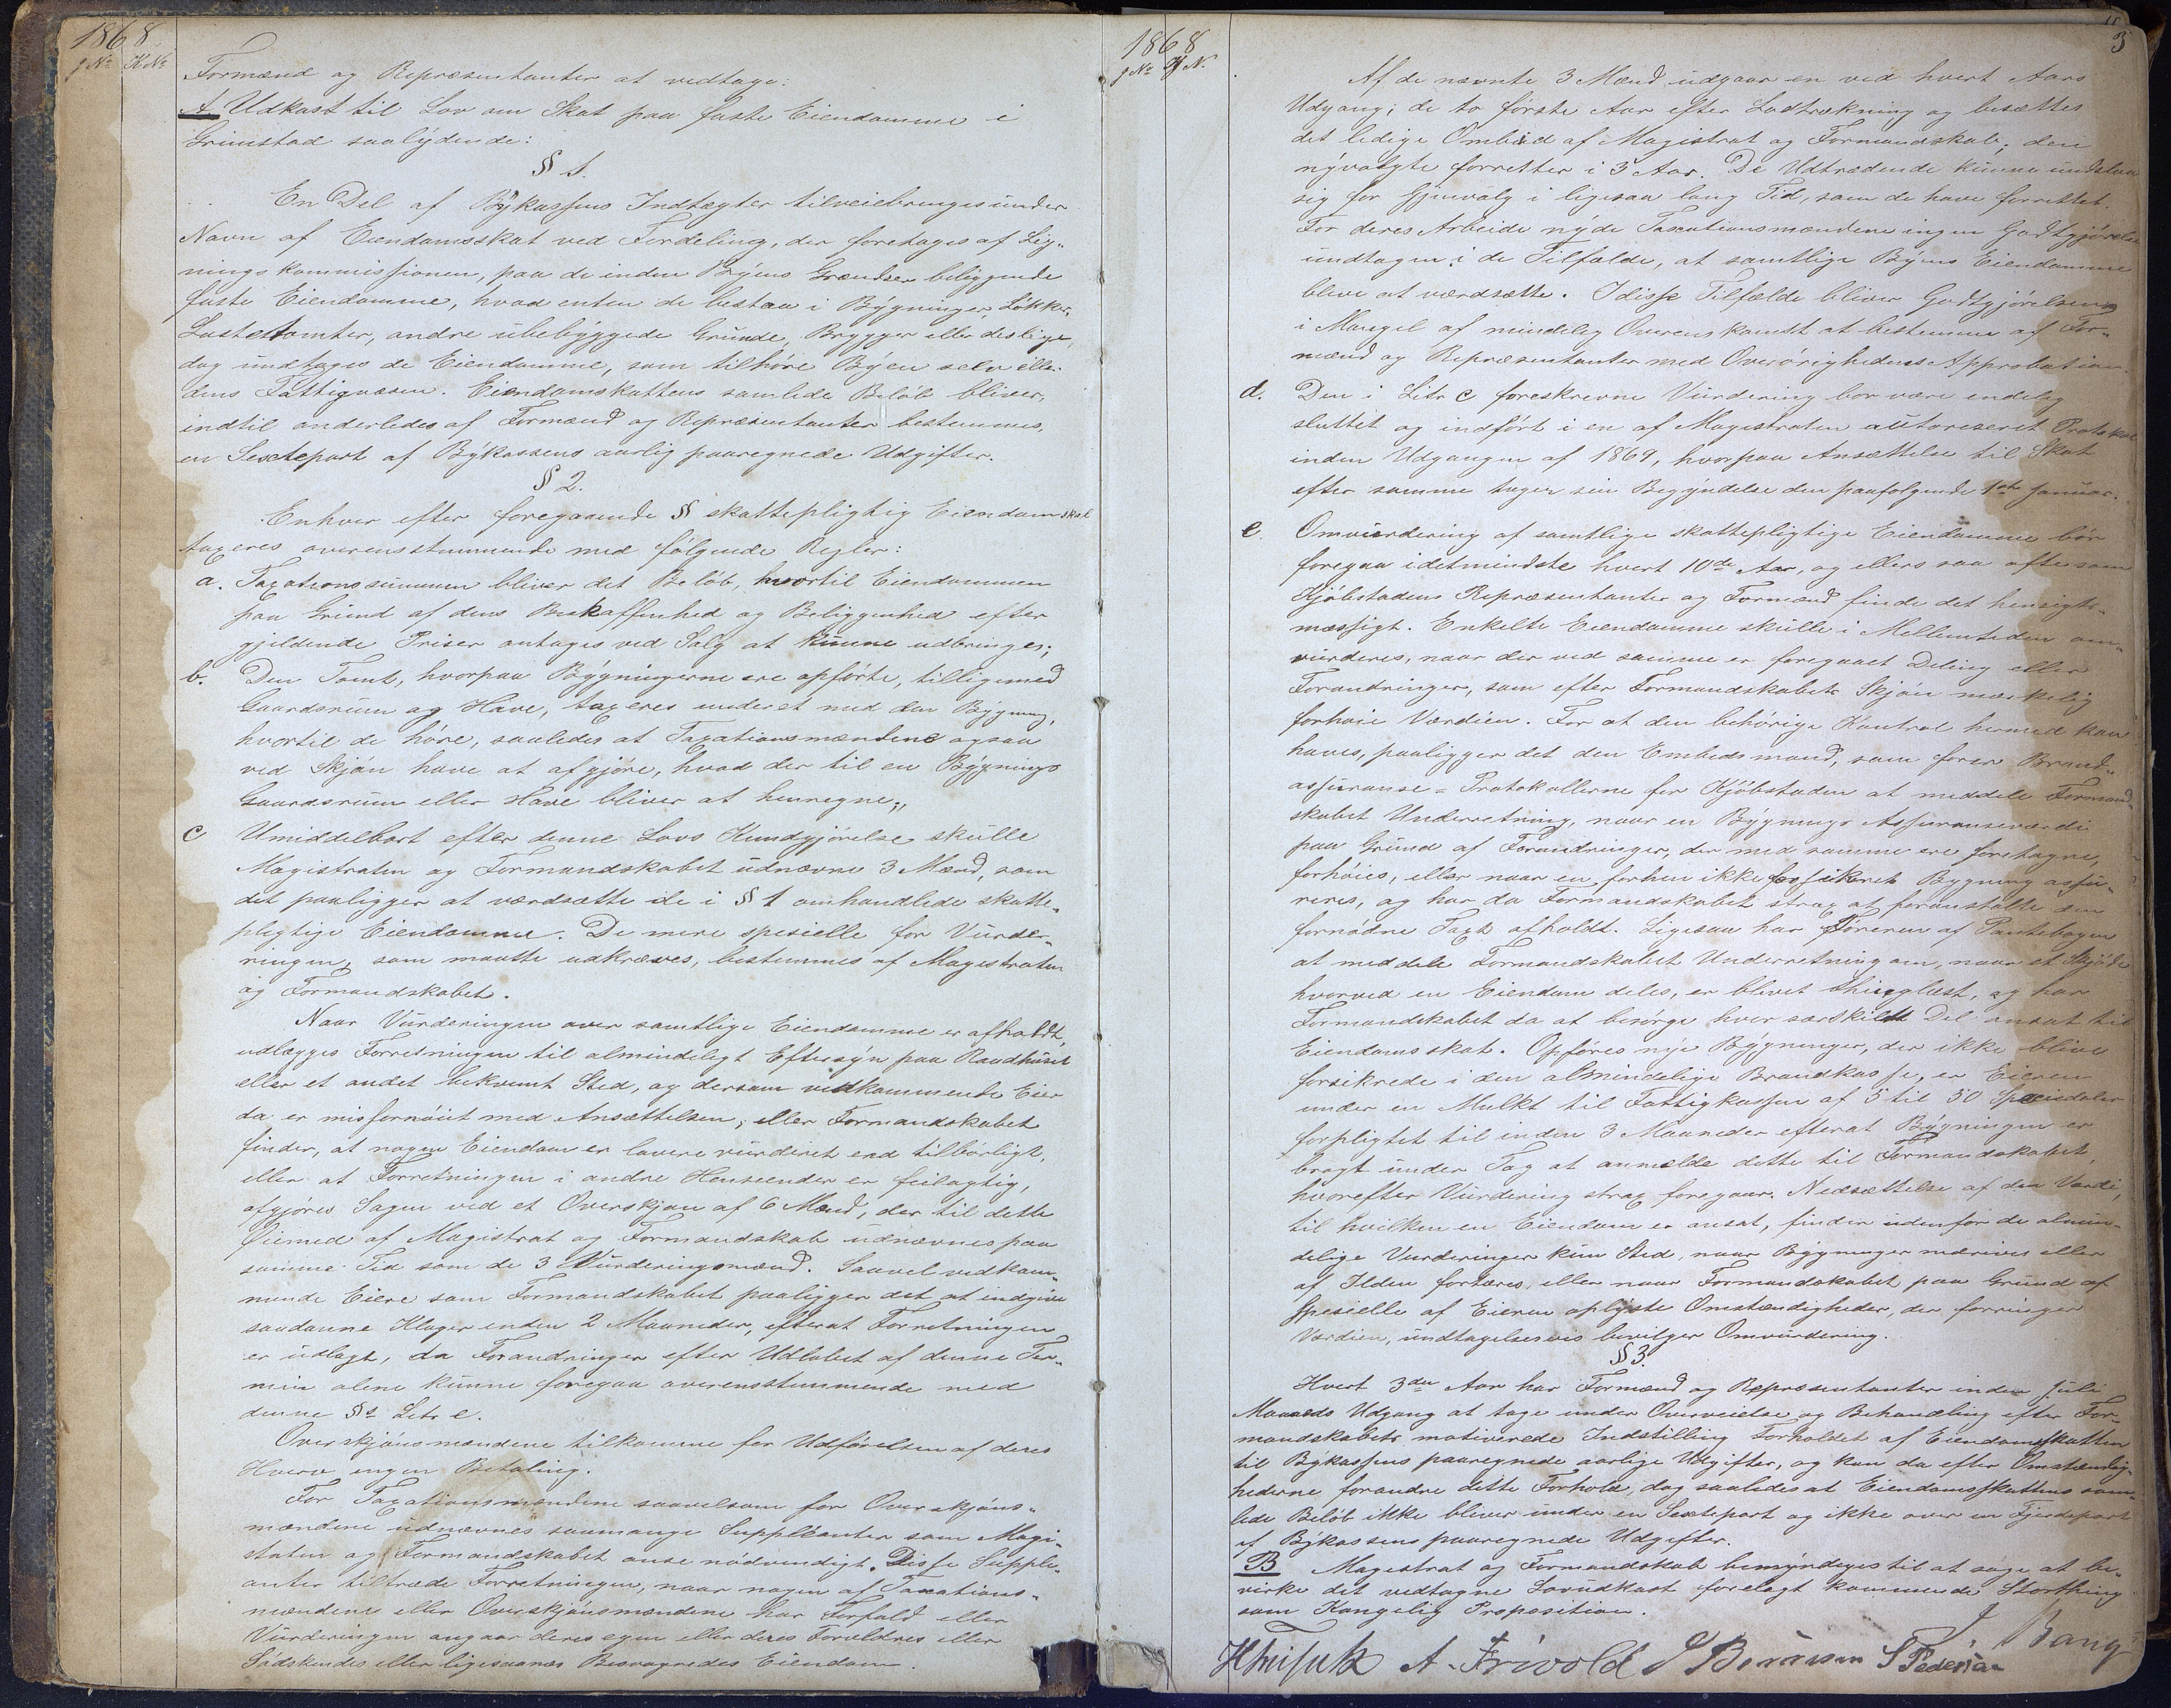 1868
J No K No
Formænd og Repræsentanter at vedtage:
A. Udkast til Lov om Skat paa faste Eiendomme i
Grimstad saalydende:
§ 1.
En Del af Bykassens Indtægter tilveiebringes under
Navn af Eiendomsskat ved Fordeling, der foretages af Lig-
ningskommissionen, paa de inden Byens Grændser beliggende
faste Eiendomme, hvad enten de bestaa i Bygninger, Løkker,
Lastetomter, andre ubebyggede Grunde, Brygger eller deslige,
dog undtages de Eiendomme, som tilhøre Byen selv eller
dens Fattigvæsen. Eiendomsskattens samlede Beløb bliver,
indtil anderledes af Formænd og Repræsentanter bestemmes,
en Sextepart af Bykassens aarlig paaregnede Udgifter.
§ 2.
Enhver efter foregaaende § skattepligtig Eiendom skal
taxeres overensstemmende med følgende Regler:
a. Taxationssummen bliver det Beløb, hvortil Eiendommen
paa Grund af dens Beskaffenhed og Beliggenhed efter
gjeldende Priser antages ved Salg at kunne udbringes;
b. Den Tomt, hvorpaa Bygningerne ere opførte, tilligemed
Gaardsrum og Have, taxeres under et med den Bygning,
hvortil de høre, saaledes at Taxationsmændene ogsaa
ved Skjøn have at afgjøre, hvad der til en Bygnings
Gaardsrum eller Have bliver at henregne;
c Umiddelbart efter denne Lovs Kundgjørelse skulle
Magistraten og Formandskabet udnævne 3 Mænd, som
det paaligger at værdsætte de i § 1 omhandlede skatte-
pligtige Eiendomme. De mere spesielle for Vurder-
ringen, som maatte udkræves, bestemmes af Magistraten
og Formandskabet.
Naar Vurderingen over samtlige Eiendomme er afholdt,
udlægges Forretningen til almindeligt Eftersyn paa Raadhuset
eller et andet bekvemt Sted, og dersom vedkommende Eier
da er misfornøiet med Ansættelsen, eller Formandskabet
finder, at nogen Eiendom er lavere vurderet end tilbørligt,
eller at Forretningen i andre Henseender er feilagtig,
afgjøres Sagen ved et Overskjøn af 6 Mænd, der til dette
Øiemed af Magistrat og Formandskab udnævnes paa
samme Tid som de 3 Vurderingsmænd. Saavel vedkom-
mende Eiere som Formandskabet paaligger det at indgive
saadanne Klager inden 2 Maaneder, efterat Forretningen
er udlagt, da Forandringer efter Udløbet af denne Ter-
min alene kunne foregaa overensstemmende med
denne §s Litr e.
Overskjønsmændene tilkomme for Udførelsen af deres
Hverv ingen Betaling.
For Taxationsmændene saavelsom for Overskjøns-
mændene udnævnes saamange Suppleanter som Magi-
straten og Formandskabet anse nødvendigt. Disse Supple-
anter tiltræde Forretningen, naar nogen af Taxations-
mændene eller Overskjønsmændene har Forfald eller
Vurderingen angaar deres egen eller deres Forældres eller
Sødskendes eller ligesaanær Besvogredes Eiendom
1868
J No K N.
3
Af de nævnte 3 Mænd udgaar en ved hvert Aars
Udgang; de to første Aar efter Lodtrækning og besættes
det ledige Ombud af Magistrat og Formandskab; den
nyvalgte forretter i 3 Aar. De Udtrædende kunne undslaa
sig for Gjenvalg i ligesaa lang Tid, som de have forrettet.
For deres Arbeide nyde Taxationsmændene ingen Godtgjørelse
undtagen i de Tilfælde, at samtlige Byens Eiendomme
blive at værdsætte. I disse Tilfælde bliver Godtgjørelsen
i Mangel af mindelig Overenskomst at bestemme af For-
mænd og Repræsentanter med Overøvrighedens Approbation.
d. Den i Litr c foreskrevne Vurdering bør være endelig
sluttet og indført i en af Magistraten autoriseret Protokol
inden Udgangen af 1869, hvorpaa Ansættelse til Skat
efter samme tager sin Begyndelse den paafølgende 1ste Januar.
e. Omvurdering af samtlige skattepligtige Eiendomme bør
foregaa idetmindste hvert 10de Aar, og ellers saa ofte som
Kjøbstadens Repræsentanter og Formænd finde det hensigts-
mæssigt. Enkelte Eiendomme skulle i Mellemtiden om-
vurderes, naar der ved samme er foregaaet Deling eller
Forandringer, som efter Formandskabets Skjøn mærkelig
forhøie Værdien. For at den behørige Kontrol hermed kan
haves, paaligger det den Embedsmand, som fører Brand-
assuranse-Protokollerne for Kjøbstaden at meddele Formand-
skabet Underretning, naar en Bygnings Assuranseværdi
paa Grund af Forandringer, der med samme ere foretagne,
forhøies, eller naar en forhen ikke forsikret Bygning assu-
reres, og har da Formandskabet strax at foranstalte den
fornødne Taxt afholdt. Ligesaa har Føreren af Pantebogen
at meddele Formandskabet Underretning om, naar et Skjøde
hvorved en Eiendom deles, er blevet thinglæst, og har
Formandskabet da at besørge hver særskildt Del ansat til
Eiendomsskat. Opføres nye Bygninger, der ikke blive
forsikrede i den almindelige Brandkasse, er Eieren
under en Mulkt til Fattigkassen af 5 til 50 Speciedaler
forpligtet til inden 3 Maaneder efterat Bygningen er
bragt under Tag at anmelde dette til Formandskabet,
hvorefter Vurdering strax foregaar. Nedsættelse af den Værdi,
til hvilken en Eiendom er ansat, finder udenfor de almin-
delige Vurderinger kun Sted, naar Bygninger nedrives eller
af Ilden fortæres, eller naar Formandskabet paa Grund af
spesielle af Eieren oplyste Omstændigheder, der forringer
Værdien, undtagelsesvis bevilger Omvurdering.
§ 3.
Hvert 3die Aar har Formænd og Repræsentanter inden Juli
Maaneds Udgang at tage under Overveielse og Behandling efter For-
mandskabets motiverede Indstilling Forholdet af Eiendomsskatten
til Bykassens paaregnede aarlige Udgifter, og kan da efter Omstændig-
hederne forandre dette Forhold, dog saaledes at Eiendomsskattens sam-
lede Beløb ikke bliver under en Sextepart og ikke over en Fjerdepart
af Bykassens paaregnede Udgifter.
B Magistrat og Formandskab bemyndiges til at søge at be-
virke det vedtagne Lovudkast forelagt kommende Storthing
som Kongelig Proposition.
J Bang
A. Frivold S Pedersen